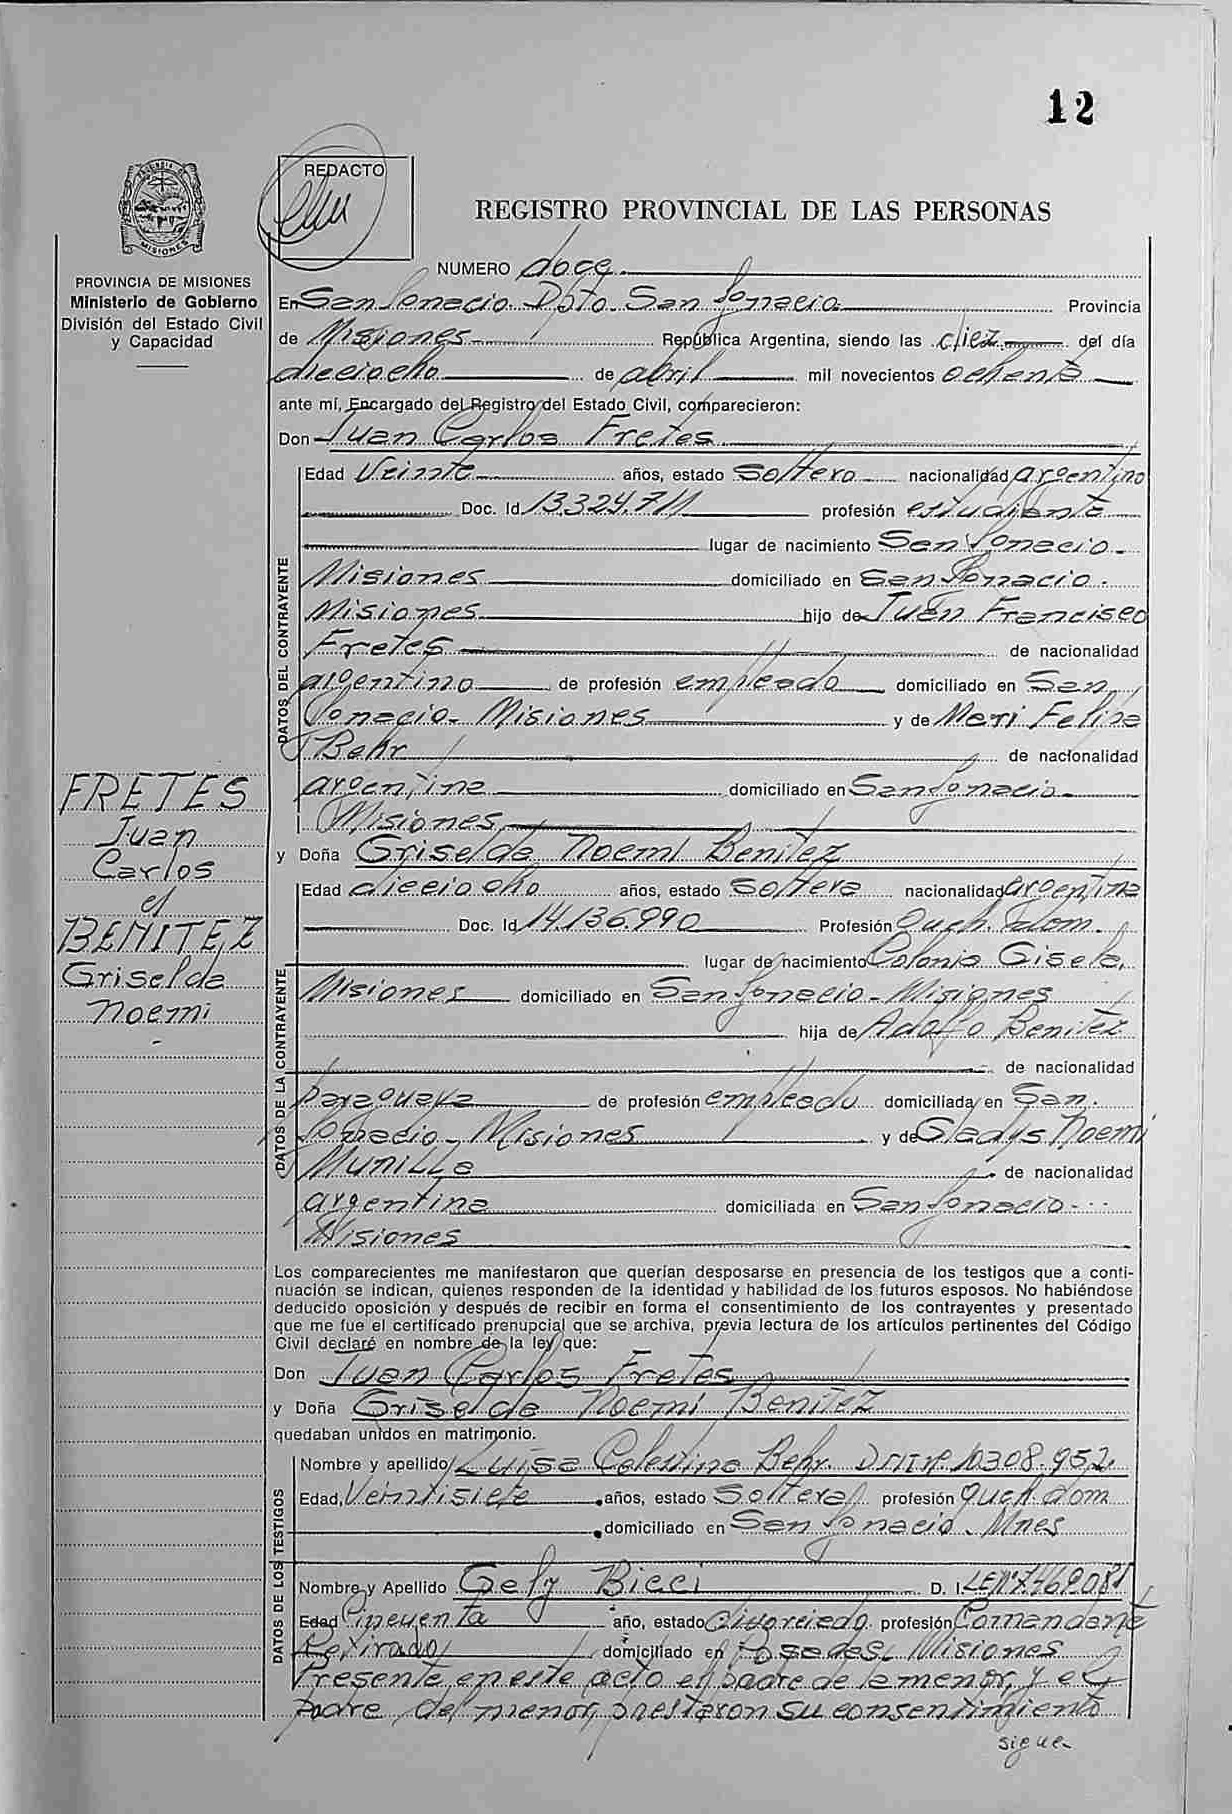 12
REDACTO
REGISTRO PROVINCIAL DE LAS PERSONAS
PROVINCIA DE MISIONES
Ministerio de Gobierno
División del Estado Civil
y Capacidad
NUMERO doce
En San Ignacio Dpto. San Ignacio Provincia
de Misiones República Argentina, siendo las diez del día
dieciocho de abril mil novecientos ochenta
ante mí, Encargado del Registro del Estado Civil, comparecieron:
Don Juan Carlos Fretes
Edad Veinte años, estado soltero nacionalidad argentino
Doc. Id 13.324.711 profesión estudiante
lugar de nacimiento San Ignacio -
Misiones domiciliado en San Ignacio.
Misiones hijo de Juan Francisco
Fretes de nacionalidad
argentino de profesión empleado domiciliado en San
Ignacio - Misiones y de Mari Felipa
Behr de nacionalidad
argentina domiciliado en San Ignacio -
Misiones
y Doña Griselda Noemi Benitez
Edad dieciocho años, estado soltera nacionalidad argentina
Doc. Id 14.136.990 Profesión Queh. dom.
lugar de nacimiento Colonia Gisela,
Misiones domiciliado en San Ignacio - Misiones
hija de Adolfo Benitez
de nacionalidad
paraguaya de profesión empleado domiciliada en San
Ignacio - Misiones y de Gladys Noemi
Munilla de nacionalidad
argentina domiciliada en San Ignacio -
Misiones
DATOS DEL CONTRAYENTE
DATOS DE LA CONTRAYENTE
FRETES
Juan
Carlos
c/
BENITEZ
Griselda
Noemi
Los comparecientes me manifestaron que querían desposarse en presencia de los testigos que a conti-
nuación se indican, quienes responden de la identidad y habilidad de los futuros esposos. No habiéndose
deducido oposición y después de recibir en forma el consentimiento de los contrayentes y presentado
que me fue el certificado prenupcial que se archiva, previa lectura de los artículos pertinentes del Código
Civil declaré en nombre de la ley que:
Don Juan Carlos Fretes
y Doña Griselda Noemi Benitez
quedaban unidos en matrimonio.
DATOS DE LOS TESTIGOS
Nombre y apellido Luisa Celestina Behr. DNI Nº 10.308.952.
Edad, Veintisiete años, estado Soltera profesión Queh. dom
domiciliado en San Ignacio - Mnes
Nombre y Apellido Gely Bicci D. I. LE Nº 7.469.081
Edad Cincuenta año, estado divorciado profesión Comandante
Retirado domiciliado en Posadas, Misiones
Presente en este acto el padre de la menor, y el
padre del menor, prestaron su consentimiento
sigue-